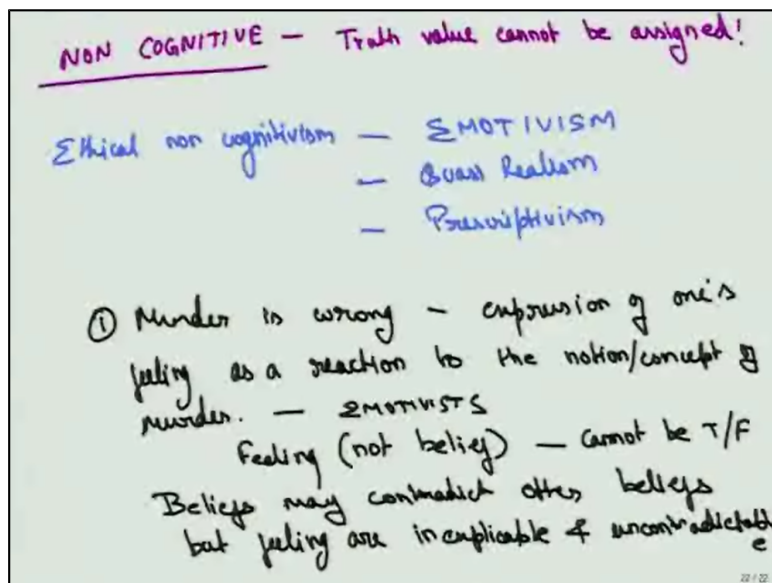 NON COGNITIVE — Truth value cannot be assigned!
Ethical non cognitivism — EMOTIVISM
— Quasi Realism
— Prescriptivism
① Murder is wrong — expression of one's
feeling as a reaction to the notion/concept of
murder. — EMOTIVISTS
Feeling (not belief) — cannot be T/F
Beliefs may contradict other beliefs
but feeling are inexplicable & uncontradictable
22 / 22